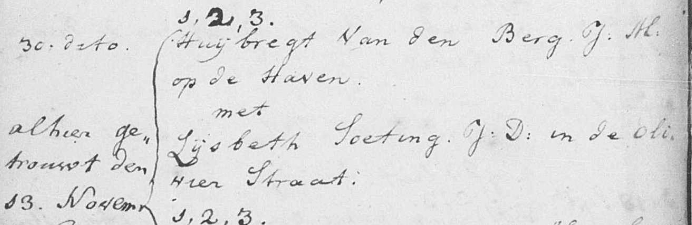 1, 2, 3.
30. dito. Huijbregt Van den Berg. J. M.
op de Haven.
met
alhier ge„ Lijsbeth Soeting. J: D: in de Oli„
trouwt den vier Straat:
13. Novemr
1, 2, 3.